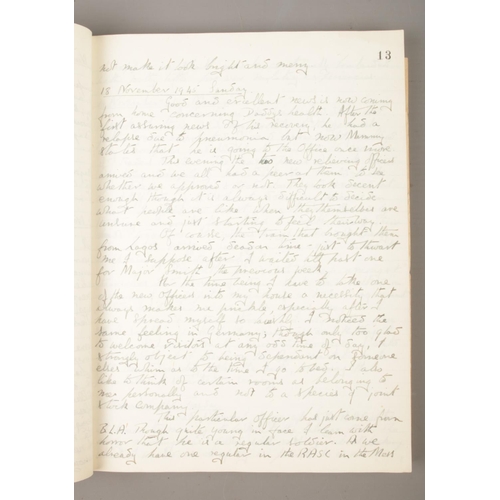 13
not make it look bright and merry
18 November 1945 Sunday
Good and excellent news is now coming
from home concerning Daddy's health. After the
first assuring news of his recovery he had a
relapse due to pneumonia but now Mummy
states that he is going to the Office once more
This evening the two new relieving officers
arrived and we all had a peer at them to see
whether we approved or not. They look decent
enough though it is always difficult to decide
what people are like when they themselves are
and just
the train that brought them
from Lagos arrived dead on time - just to thwart
me I suppose after I waited all past one
for Major the previous week
For the time being I have to take one
of the new Officers into my house a necessity that
always makes me prickle, especially after I
have been by myself so I noticed the
same feeling in Germany; though only too glad
to welcome visitors at any odd time of day, I
strongly object to being dependent on someone
else when as to the time I go to bed. I also
like to think of certain rooms as belonging to
me personally and not to a species of joint
stock company.
This particular officer has just come from
B.L.A. Though quite young in face I learn with
horror that he is a regular soldier. As we
already have one regular in the RASC in the Mess